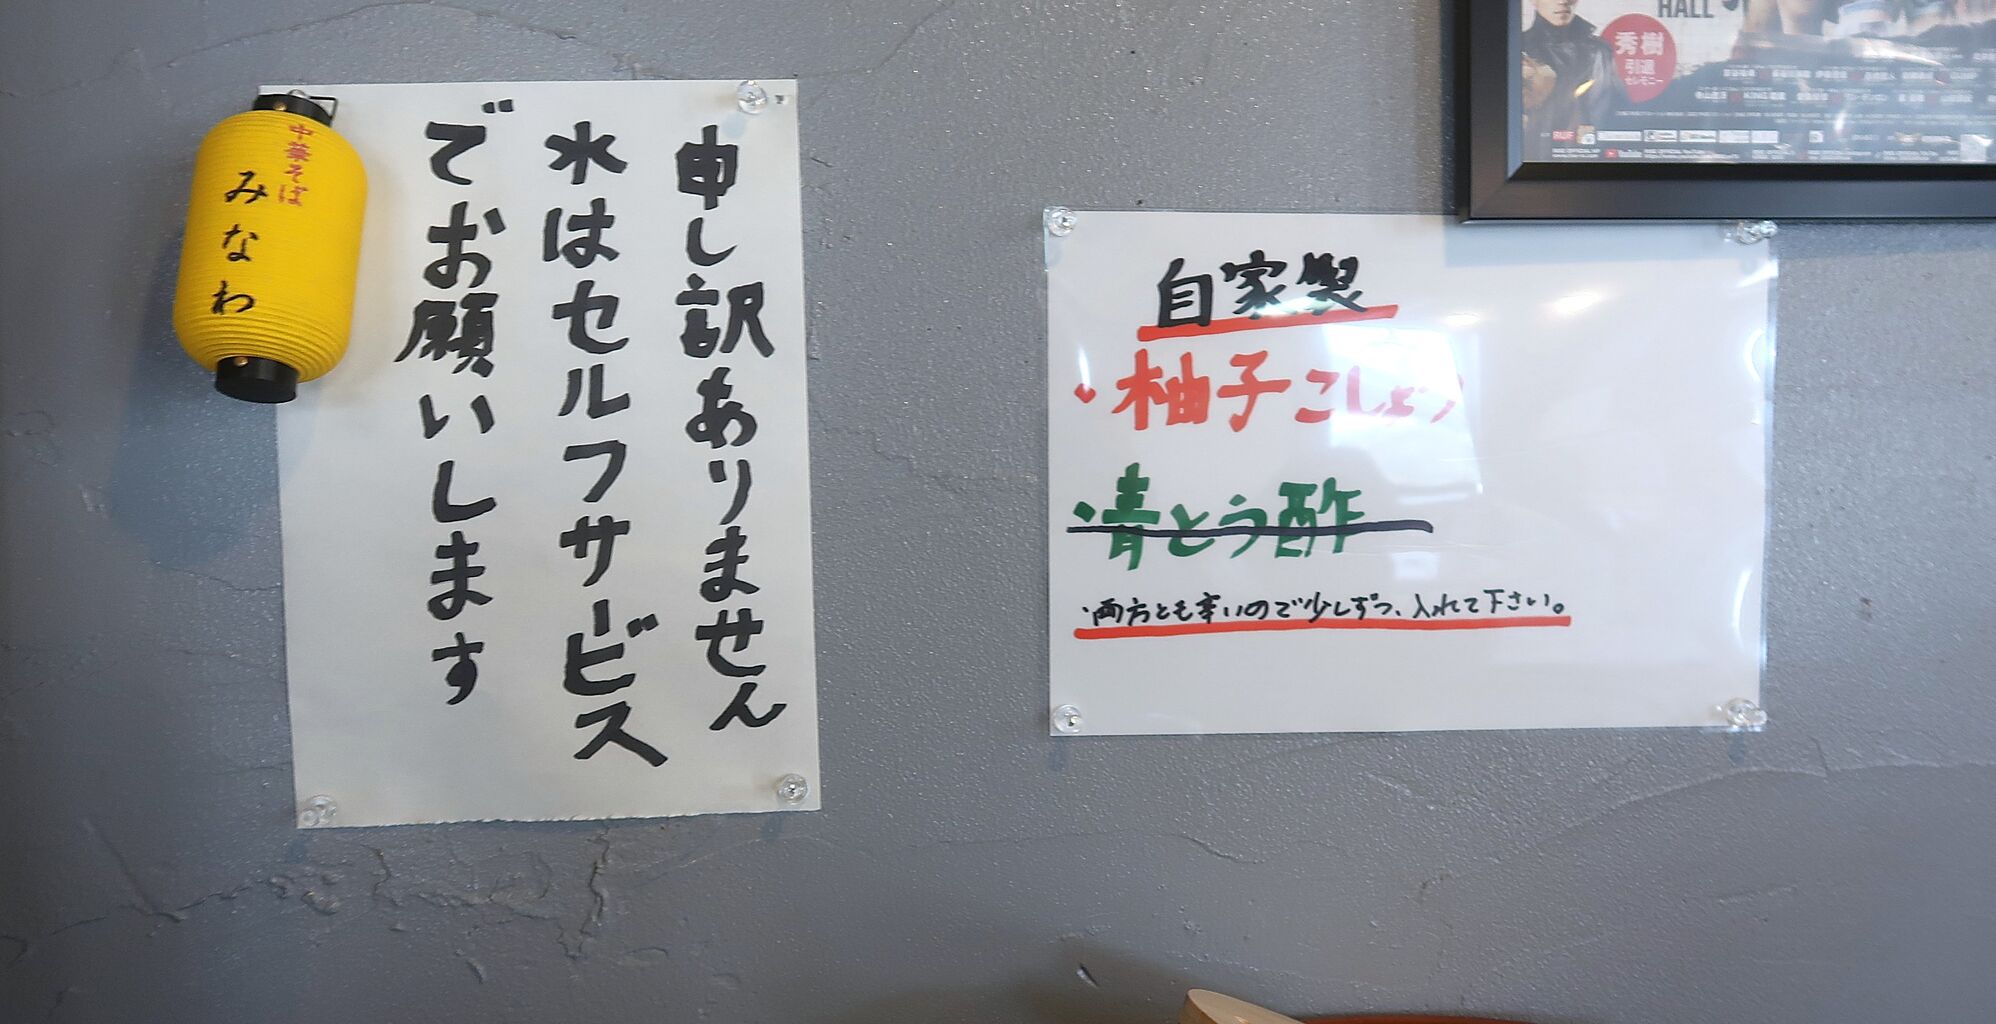 中華そば
みなわ
申し訳ありません
水はセルフサービス
でお願いします
自家製
・柚子こしょう
・青とう酢
・両方とも辛いので少しずつ、入れて下さい。
HALL
秀樹
引退
セレモニー